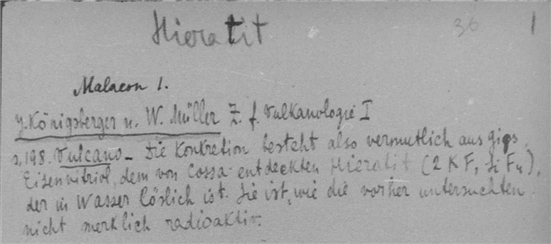 Hieratit
36 1
Malacon 1.
J. Königsberger u. W. Müller Z. f. Vulkanologie I
s, 198. Vulcano - Die Konkretion besteht also vermutlich aus gips
Eisenvitriol, dem von Cossa entdeckten Hieratit (2 KF, Si F4)
der in Wasser löslich ist. Sie ist, wie die vorher untersuchten
nicht merklich radioaktiv.